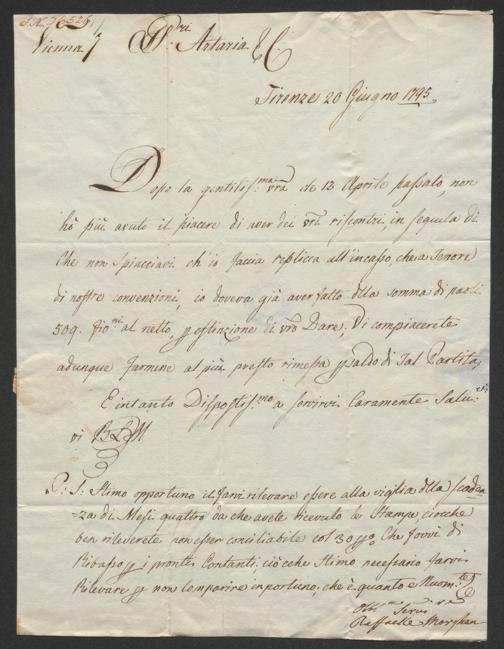 I.N. 76.526
Vienna Sri. Artaria & C.
Firenze 20 Giugno 1795.
Dopo la gentiliss.ma vra de 13 Aprile passato, non
hò più avuto il piacere di aver dei vri riscontri, in sequela di
Che non spiacciavi ch'io faccia replica all'incasso, che a Tenore
di nostre convenzioni, io doveva già aver fatto dlla somma di paoli
509. fio.ni al netto, p estinzione di vro Dare, Vi compiacerete
adunque farmene al più presto rimessa p saldo di Tal Partita,
E intanto Dispostiss.mo a servirvi Caramente Salu-
vi BLM
P: S: Stimo opportuno il farvi rilevare essere alla vigilia dlla scaden
-za di Mesi quattro da che avete ricevuto le Stampe, cioche
ben rileverete non esser conciliabile col 30 p% Che fovvi di
Ribasso p i pronti Contanti; ciò che Stimo necessario farvi
Rilevare p non comparire inportuno, che è quanto e Nuom.te
Obb.mo Serv.re
Raffaelle Morghen